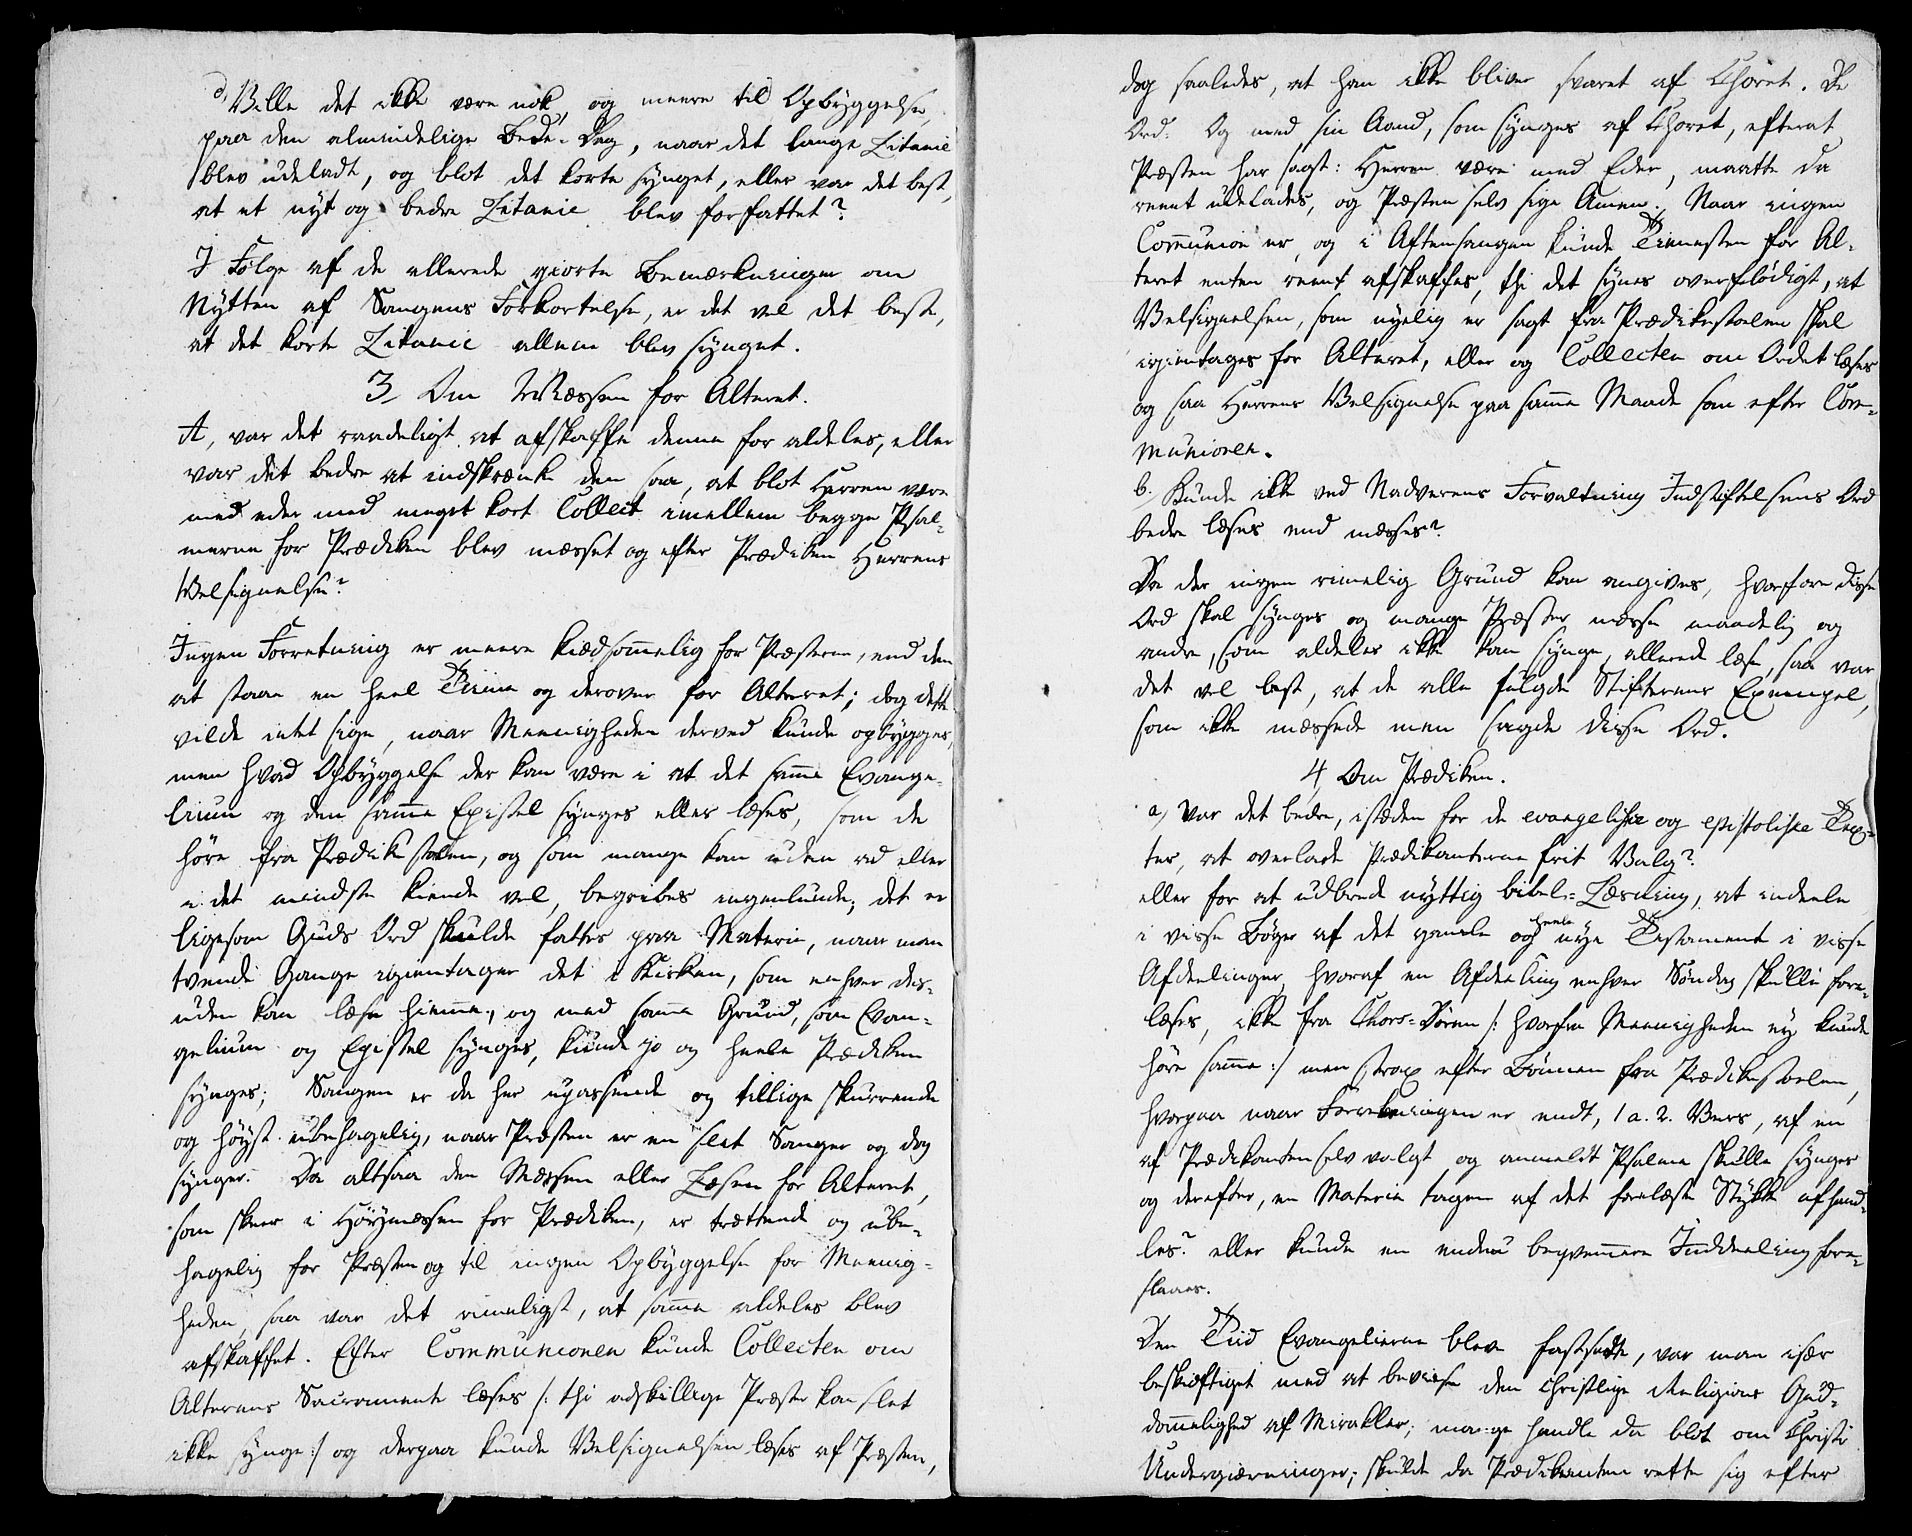 d, Ville det ikke være nok, og meere til Opbyggelse,
paa den almindelige Bede-Dag, naar det lange Litanie
blev udeladt, og blot det korte synget, eller var det best,
at et nyt og bedre Litanie blev forfattet?
I Følge af de allerede giorte Bemærkninger om
Nytten af Sangens Forkortelse, er det vel det beste,
at det korte Litanie allene blev synget.
3, Om Messen for Alteret.
A, var det raadeligt at afskaffe denne for aldeles, eller
var det bedre at indskrænke den saa, at blot Herren være
med eder med meget kort Collect imellem begge Psal-
merne for Prædiken blev messet og efter Prædiken Herrens
Velsignelse?
Ingen Forretning er meere kiedsommelig for Præsterne, end den
at staae en heel Time og derover for Alteret; dog dette
vilde intet sige, naar Meenigheden derved kunde opbygges,
men hvad Opbyggelse der kan være i at det samme Evange-
lium og den samme Epistel synges eller læses, som de
høre fra Prædikestolen, og som mange kan uden ad eller
i det mindste kiende vel, begribes ingenlunde; det er
ligesom Guds Ord skulde fattes paa Materie, naar man
tvende Gange igientager det i Kirken, som enhver des-
uden kan læse hiemme, og med samme Grund, som Evan-
gelium og Epistel synges, kunde jo og heele Prædiken
synges; Sangen er da her upassende og tillige skurrende
og høyst ubehagelig, naar Præsten er en slet Sanger og dog
synger. Da altsaa den Messen eller Læsen for Alteret,
som skeer i Høymessen for Prædiken, er trættende og ube-
hagelig for Præsten og til ingen Opbyggelse for Meenig-
heden, saa var det rimeligst, at samme aldeles blev
afskaffet. Efter Communionen kunde Collecten om
Alterens Sacramente læses /: thi adskillige Præster kan slet
ikke synge :/ og derpaa kunde Velsignelsen læses af Præsten,
dog saaledes, at han ikke bliver svaret af Choret. De
Ord: Og med sin Aand, som synges af Choret, efterat
Præsten har sagt: Herren være med Eder, maatte da
reent udelades, og Præsten selv sige Amen. Naar ingen
Communion er, og i Aftensangen kunde Tienesten for Al-
teret enten reent afskaffes, thi det synes overflødigt, at
Velsignelsen, som nyelig er sagt fra Prædikestolen skal
igientages for Alteret, eller og Collecten om Ordet læses
og saa Herrens Velsignelse paa samme Maade som efter Com-
munionen.
b. Kunde ikke ved Nadverens Forvaltning Indstiftelsens Ord
bedre læses end messes?
Da der ingen rimelig Grund kan angives, hvorfore disse
Ord skal synges og mange Præster messe maadelig og
andre, som aldeles ikke kan synge, allerede læse, saa var
det vel best, at de alle fulgde Stifterens Exempel,
som ikke messede men sagde disse Ord.
4, Om Prædiken.
a, Var det bedre, istæden for de evangeliske og epistoliske Tex-
ter, at overlade Prædikanterne frit Valg?
eller for at udbrede nyttig bibel-Læsning, at indeele
i visse Bøger af det gamle og heele nye Testament i visse
Afdeelinger, hvoraf en Afdeeling enhver Søndag skulle fore-
læses, ikke fra Chors-Døren /: hvorfra Meenigheden ey kunde
høre samme :/ men strax efter Bønnen fra Prædikestolen,
hvorpaa naar Forelæsningen er endt, 1 a. 2. Vers, af en
af Prædikanten selv valgt og anmeldt Psalme skulle synges
og derefter, en Materie tagen af det forelæste Stykke afhand-
les? eller kunde en endnu beqvemmere Inddeeling fore-
slaaes.
Den Tiid Evangelierne blev fastsadte, var man især
beskieftiget med at bevise den christelige Religions Gud-
dommelighed af Mirakler; mange handle da blot om Christi
Undergierninger; skulde da Prædikanten rette sig efter